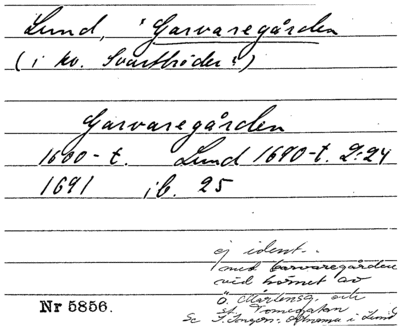 Lund, "Garvaregården
(i kv. Svartbröder")
Garvaregården
1600-t. Lund 1690-t. 2:24
1691 ib. 25
ej ident.
med Garvaregården
vid hörnet av
Ö. Mårtensg. och
St. Tomegatan
Se i Lund
Nr 5856.